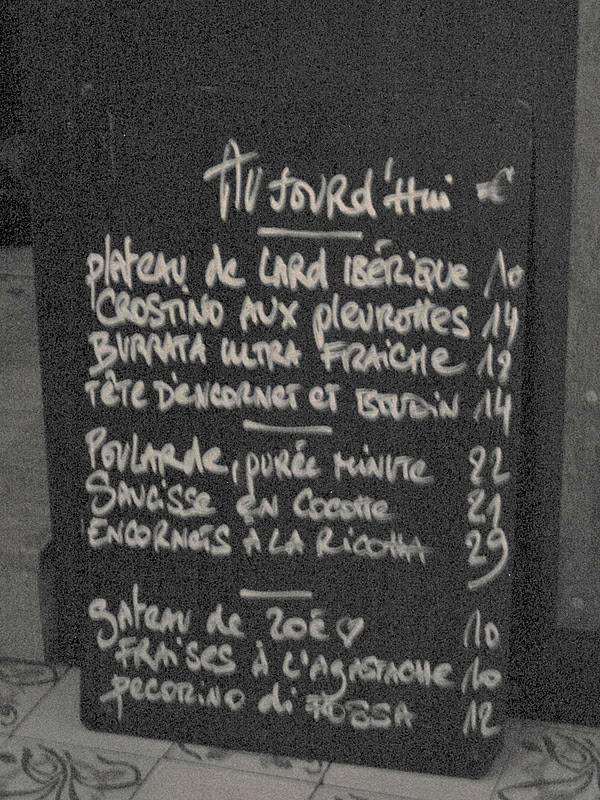 Aujourd'hui €
plateau de LARD IBÉRIQUE 10
CROSTINO AUX pleurottes 14
BURRATA ULTRA FRAICHE 12
TÊTE D'ENCORNET et BOUDIN 14
POULARde, purée MINUTE 22
SAUCISSE EN Cocotte 21
ENCORNETS À LA RICOTTA 29
gateau de Zoë ♡ 10
FRAISES À L'AGASTACHE 10
pecorino di FOSSA 12